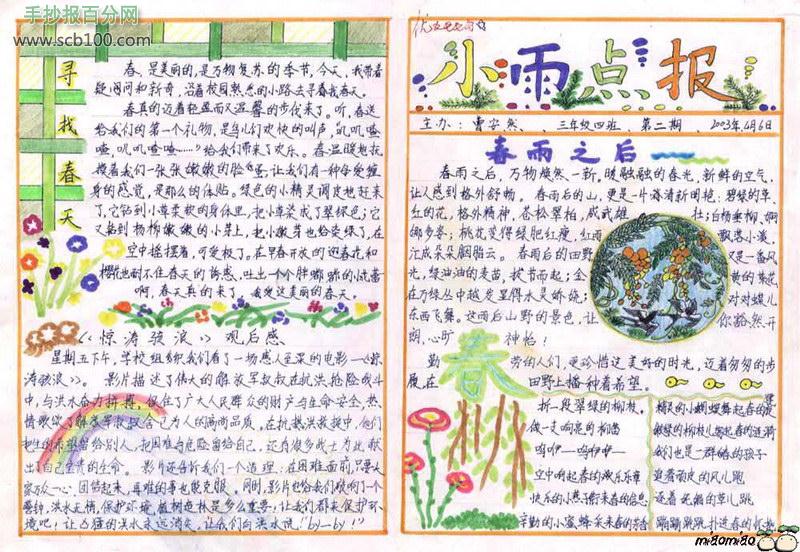 手抄报百分网
www.scb100.com
寻找春天
春,是美丽的,是万物复苏的季节,今天,我带着
疑问和新奇,沿着校园熟悉的小路去寻找春天。
春真的迈着轻盈而又温馨的步伐来了。听,春送
给我们的第一个礼物,是鸟儿们欢快的叫声,叽叽喳
喳,叽叽喳喳……给我们带来了欢乐。春温暖地抚
摸着我们一张张嫩嫩的脸
的感觉,是那么的体贴。绿色的小精灵调皮地赶来
了,它钻到小草柔软的身体里,把小草染成了翠绿色;它
又钻到杨柳嫩嫩的小芽上,把小嫩芽也给染绿了,在
空中摇摆着,可爱极了。在早春开放的迎春花和
樱花也耐不住春天的诱惑,吐出一个个胖嘟嘟的小花蕾
啊,春天真的来了,我爱这美丽的春天。
《惊涛骇浪》观后感
星期五下午,学校组织我们看了一场感人至深的电影—《惊
涛骇浪》。影片描述了伟大的解放军叔叔在抗洪抢险战斗
中,与洪水奋力拼搏,保住了广大人民群众的财产与生命安全,热
情歌颂了解放军叔叔舍己为人的高尚品质,在抗洪救援中,他们
把生的希望留给别人,把困难与危险留给自己,还有很多战士为此献
出了自己宝贵的生命。影片还告诉我们一个道理:在困难面前,只要大
家万众一心,团结起来,再难的事也能克服。同时,影片也给我们敲响了一个
警钟,关心、保护环境,植树造林是多么重要,让我们都来保护环
境吧,让凶猛的洪水永远消失,让我们向洪水说:"by—by!"
小雨点报
主办:曹安然、三年级四班、第二期、2003年4月6日
春雨之后
春雨之后,万物焕然一新。暖融融的春光,新鲜的空气,
让人感到格外舒畅。春雨后的山,更是一片清新田艳:碧绿的草,
红的花,格外精神,苍松翠柏,威武雄壮;白杨垂柳,婀
娜多姿;桃花更得绿肥红瘦,红雨飘落小溪,
汇成朵朵胭脂云。春雨后的田野又是一番风
光,绿油油的麦苗,拔节而起;金黄的菜花,
在万绿丛中越发显得水灵娇娆;对对蝶儿
东西飞舞,这雨后山野的景色,让你豁然开
朗,心旷神怡!
勤劳的人们,更珍惜这美好的时光,迈着匆匆的步
履在田野上播种着希望。
春
折一段翠绿的柳枝
做一支响亮的柳笛
呜咿——呜咿咿——
空中响起春的欢乐乐章
快乐的小燕子衔来春的信息
辛勤的小蜜蜂采来春的芬芳
精灵的小蝴蝶舞起春的
嫩绿的柳枝儿荡起春的涟漪
我们也是一群春的孩子
追着雨皮的风儿跑
逐着
蹦蹦跳跳扑进春的怀
miāomiāo